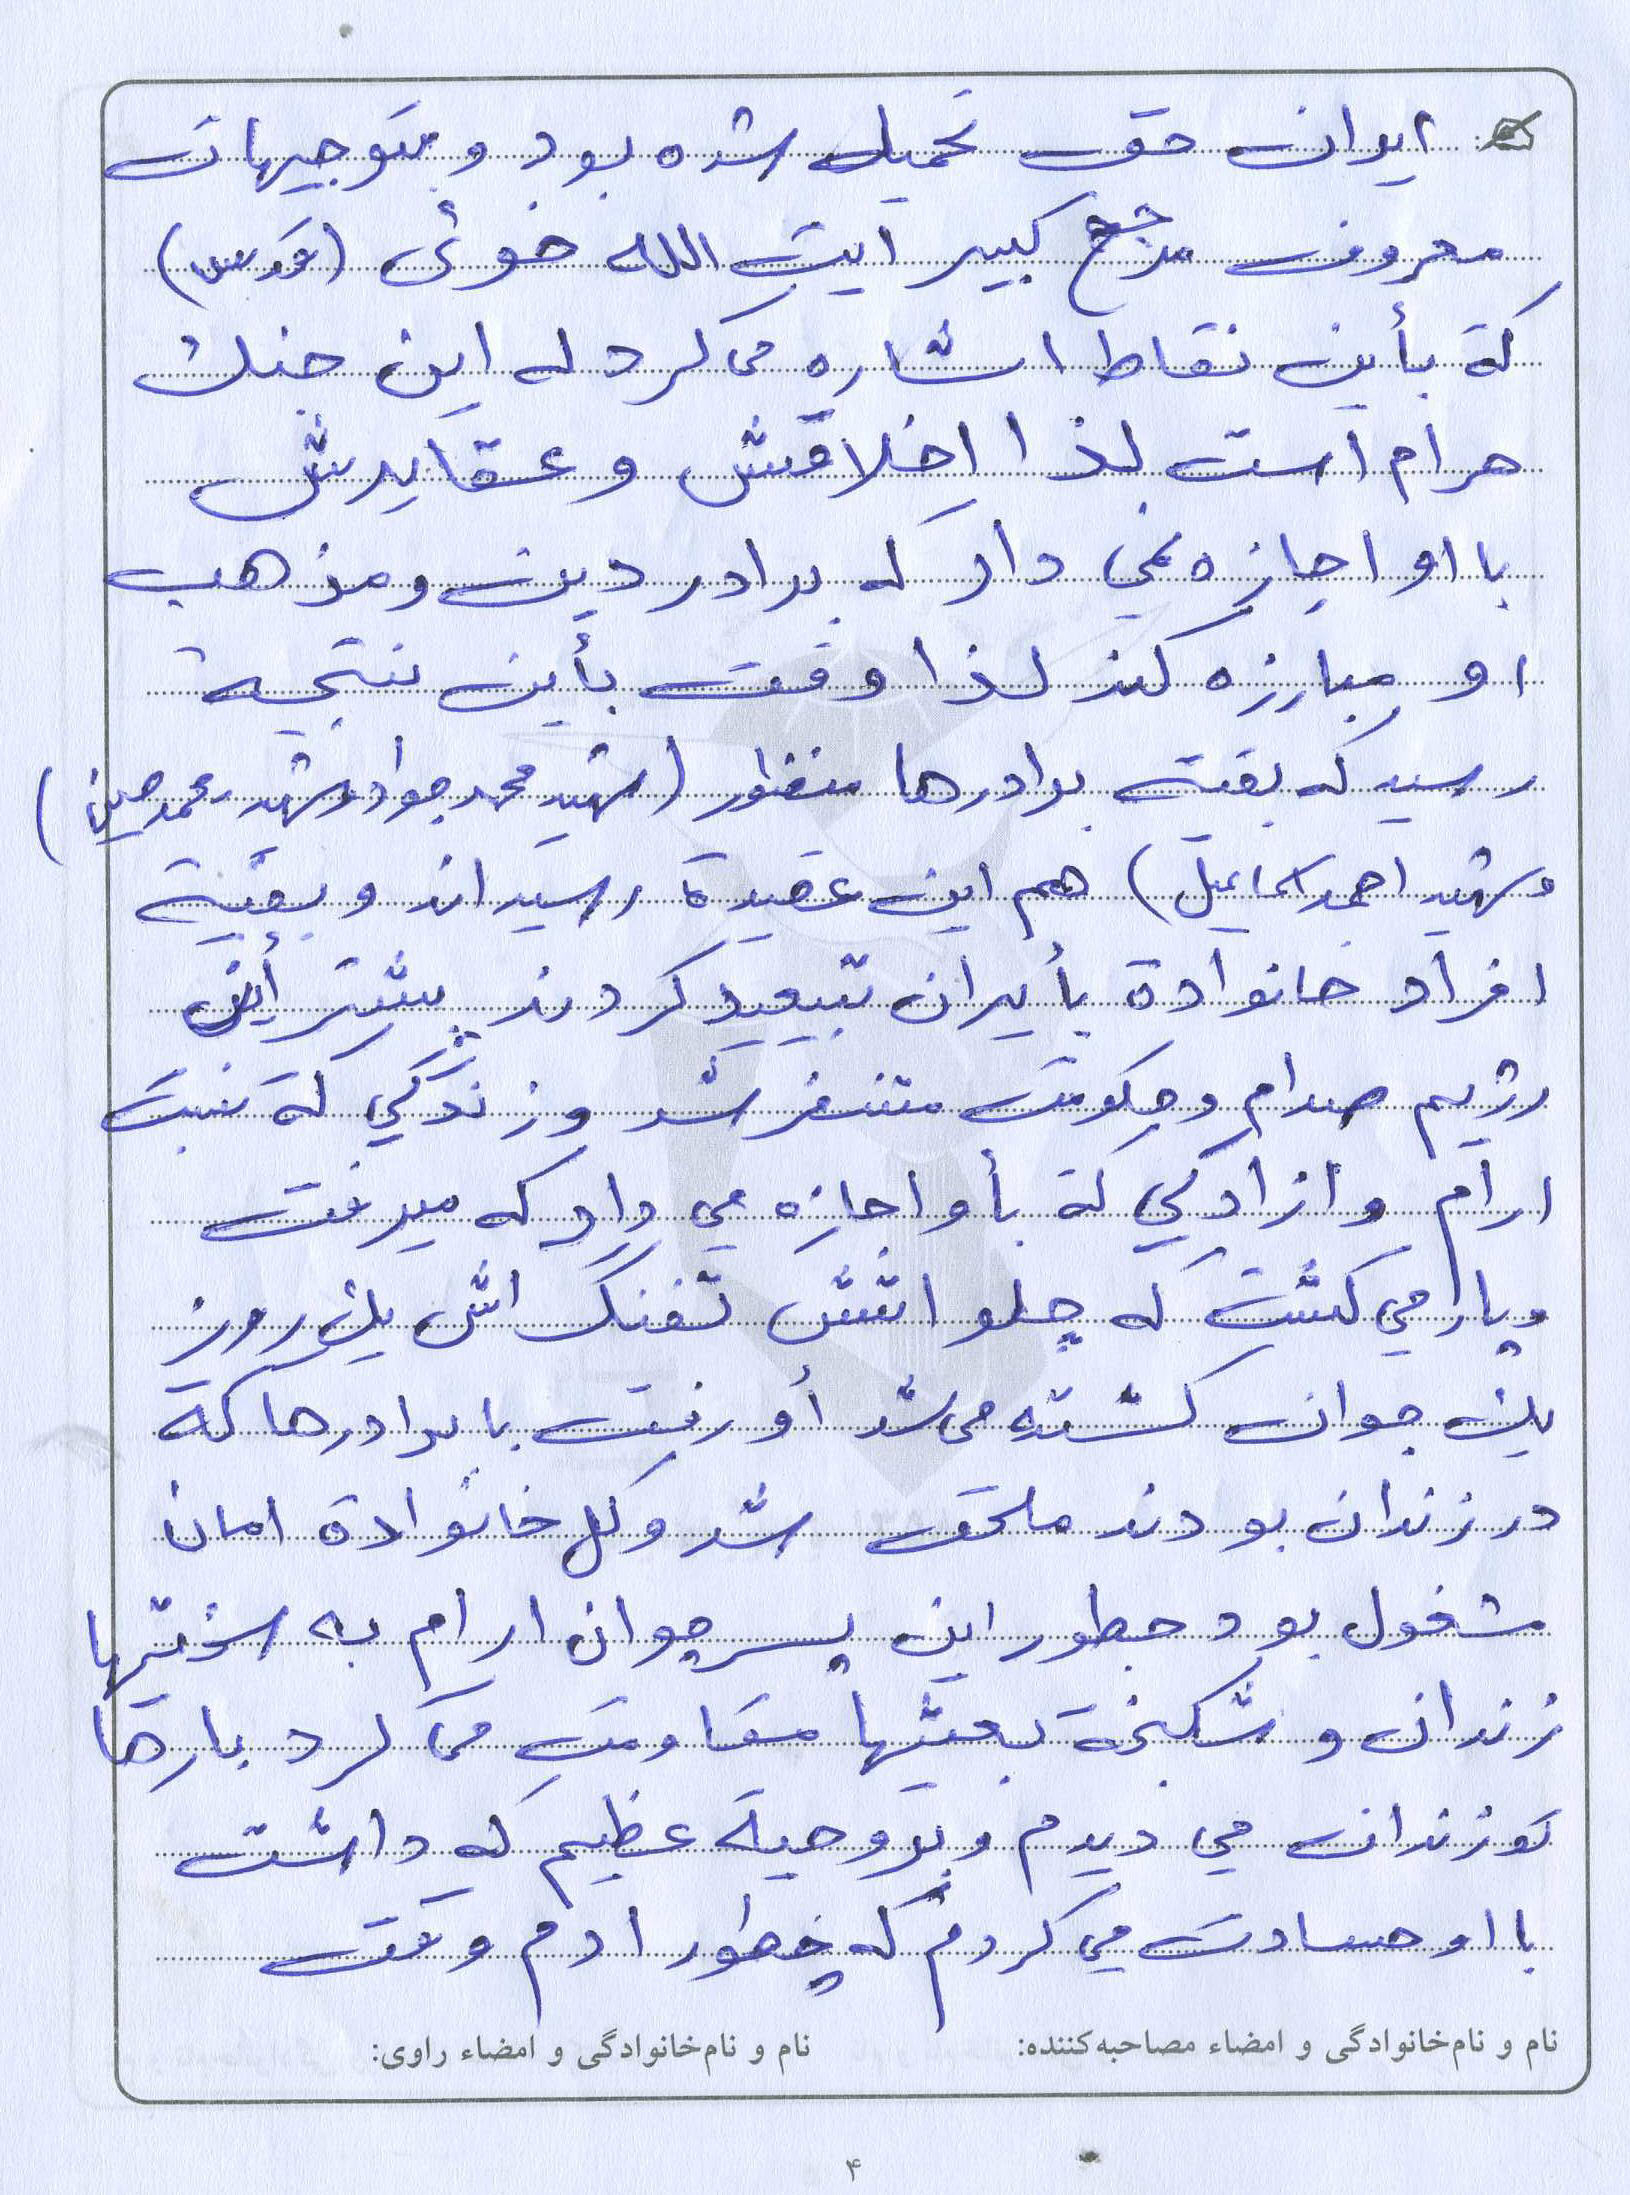 ایران حق تحمیل شده بود و بتوجیهات
معروف مرجع کبیر ایت الله خوئی (قدس)
کة بأین نقاط اشاره می کرد که این جنك
حرام است لذا اخلاقش و عقایدش
با او اجازه نمي داد که برادر دین و مذهب
او مبارزه کند لذا وقت بأین نتیجة
رسید که بقیة برادرها منظور (شهید محمد جواد وشهید محمد حسین)
وشهید احمد اسماعیل) هم این عقیدة رسیداند و بقیة
افراد خانوادة بأیران تبیعید کردند پشتر أین
رژیم صدام وحکومت متنفر شد وزندگي کة نسبت
ارام وازادگي کة بأو اجازه مي داد که میرفت
وپارا مي کشت که جلو اتش تفنگ اش یك روز
یك جوان کشته می شد أو رفت با برادرها کة
در زندان بودند ملحق شد وکل خانوادة امان
مشغول بود جطور این پسر جوان ارام به سختیها
زندان و شکنخة بعثیها مقاومت می کرد بارها
تو زندان مي دیدم وبروحیة عظیم که داشت
با او حسادت مي کردم که چطور ادم وقت
نام و نام‌خانوادگی و امضاء مصاحبه‌کننده: نام و نام‌خانوادگی و امضاء راوی:
۴